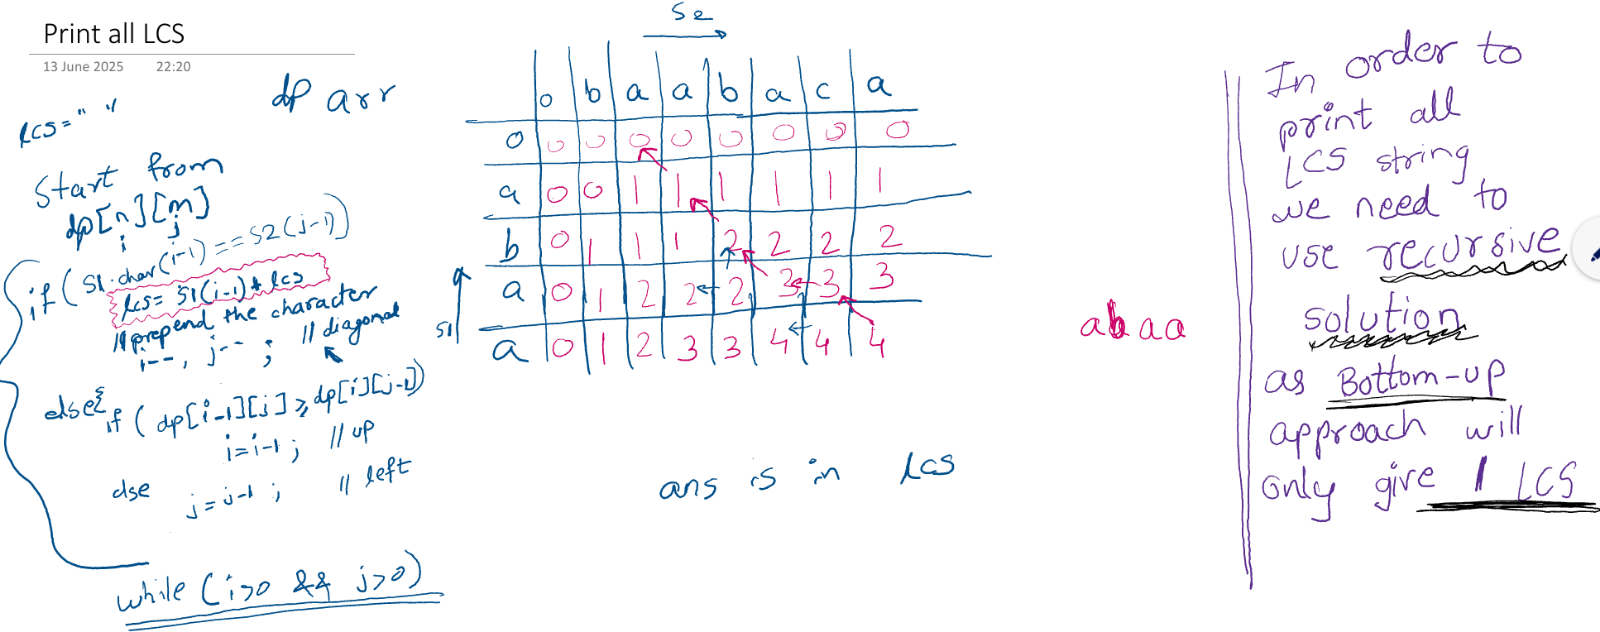 Print all LCS
13 June 2025 22:20
lcs = " "
dp arr
Start from
dp[n][m]
i j
if ( S1.char(i-1) == S2(j-1) )
lcs = S1(i-1) + lcs
// prepend the character
i--, j-- ; // diagonal
else {
if ( dp[i-1][j] ≥ dp[i][j-1] )
i = i-1 ; // up
else
j = j-1 ; // left
while ( i>0 && j>0 )
S2
0 b a a b a c a
0 0 0 0 0 0 0 0 0
a 0 0 1 1 1 1 1 1
b 0 1 1 1 2 2 2 2
a 0 1 2 2 2 3 3 3
a 0 1 2 3 3 4 4 4
S1
abaa
ans is in lcs
In order to
print all
LCS string
we need to
use recursive
solution
as Bottom-up
approach will
only give 1 LCS